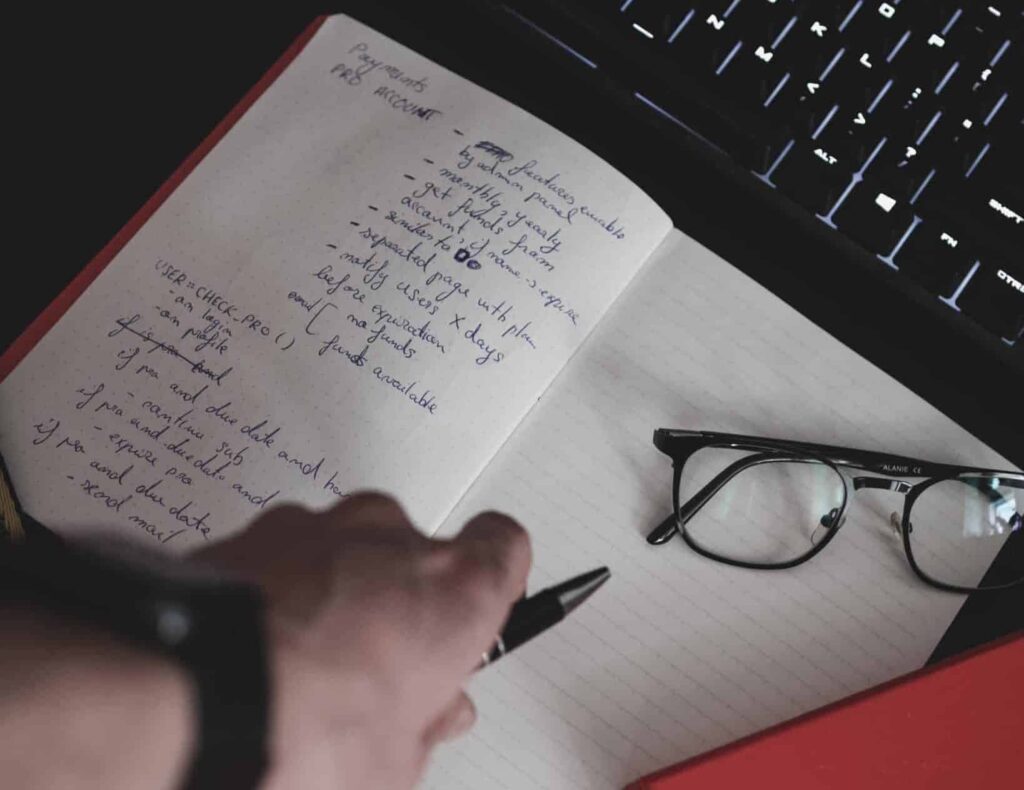 Payments
PRO ACCOUNT
- features enable
by admin panel
- monthly, yearly
- get funds from
account, if none → expire
- similar to DO
- separated page with plan
- notify users X days
before expiration
and [ no funds
funds available
USER = CHECK_PRO ()
- on login
- on profile
if is pro and
if pro and due date and have
- continue sub
if pro and due date and
- expire pro
if pro and due date
- send mail
ALANIE CE
N
M
K
L
O
P
<
>
?
ALT
FN
SHIFT
CTRL